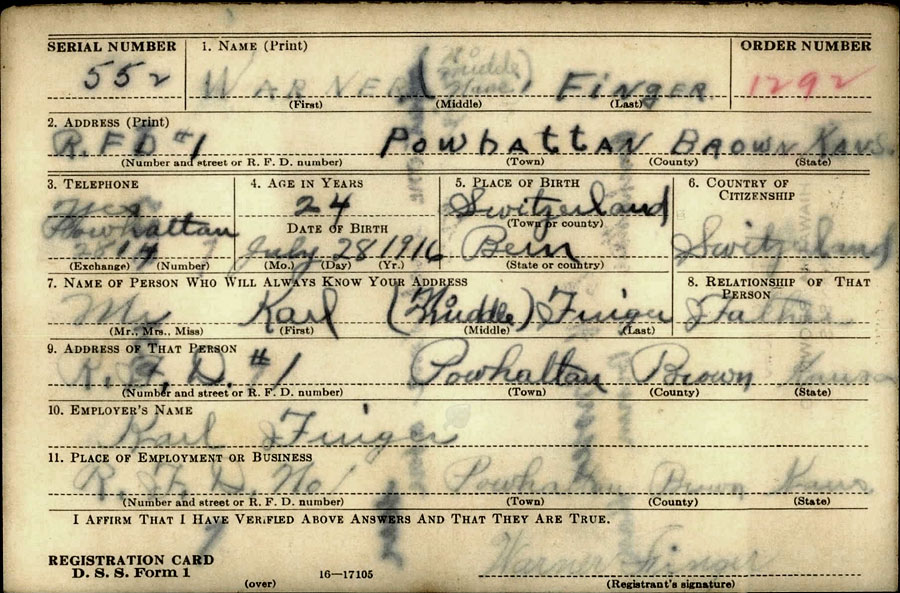 SERIAL NUMBER 1. NAME (Print) ORDER NUMBER
552 WARNER (No Middle Name) FINGER 1292
(First) (Middle) (Last)
2. ADDRESS (Print)
R.F.D #1 POWHATTAN BROWN KANS.
(Number and street or R. F. D. number) (Town) (County) (State)
3. TELEPHONE 4. AGE IN YEARS 5. PLACE OF BIRTH 6. COUNTRY OF CITIZENSHIP
24 Switzerland
Powhattan DATE OF BIRTH (Town or county)
2814 July 28 1916 Bern Switzerland
(Exchange) (Number) (Mo.) (Day) (Yr.) (State or country)
7. NAME OF PERSON WHO WILL ALWAYS KNOW YOUR ADDRESS 8. RELATIONSHIP OF THAT PERSON
Mr Karl (No Middle) Finger Father
(Mr., Mrs., Miss) (First) (Middle) (Last)
9. ADDRESS OF THAT PERSON
R. F. D. #1 Powhattan Brown Kansas
(Number and street or R. F. D. number) (Town) (County) (State)
10. EMPLOYER'S NAME
Karl Finger
11. PLACE OF EMPLOYMENT OR BUSINESS
R. F. D. No 1 Powhattan Brown Kans
(Number and street or R. F. D. number) (Town) (County) (State)
I AFFIRM THAT I HAVE VERIFIED ABOVE ANSWERS AND THAT THEY ARE TRUE.
REGISTRATION CARD
D. S. S. Form 1 Warner Finger
(over) 16—17105 (Registrant's signature)